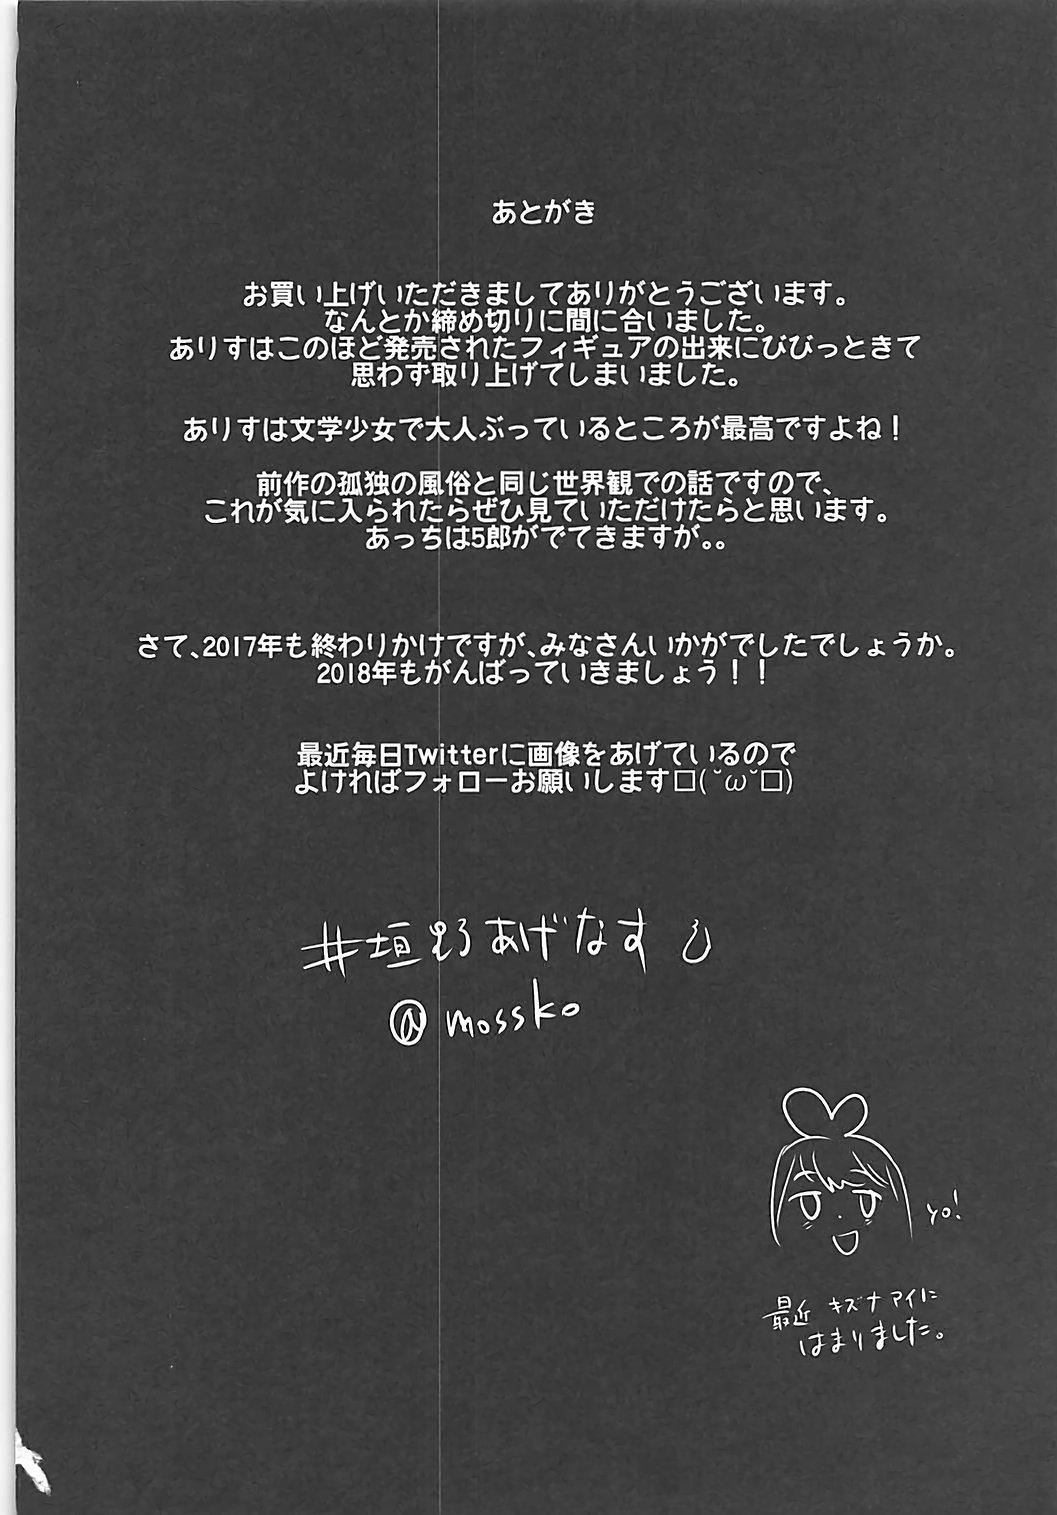 あとがき
お買い上げいただきましてありがとうございます。
なんとか締め切りに間に合いました。
ありすはこのほど発売されたフィギュアの出来にびびっときて
思わず取り上げてしまいました。
ありすは文学少女で大人ぶっているところが最高ですよね！
前作の孤独の風俗と同じ世界観での話ですので、
これが気に入られたらぜひ見ていただけたらと思います。
あっちは5郎がでてきますが。。
さて、2017年も終わりかけですが、みなさんいかがでしたでしょうか。
2018年もがんばっていきましょう！！
最近毎日Twitterに画像をあげているので
よければフォローお願いします□(˘ω˘□)
#垣野あげなす
@mossko
yo!
最近 キズナアイに
はまりました。